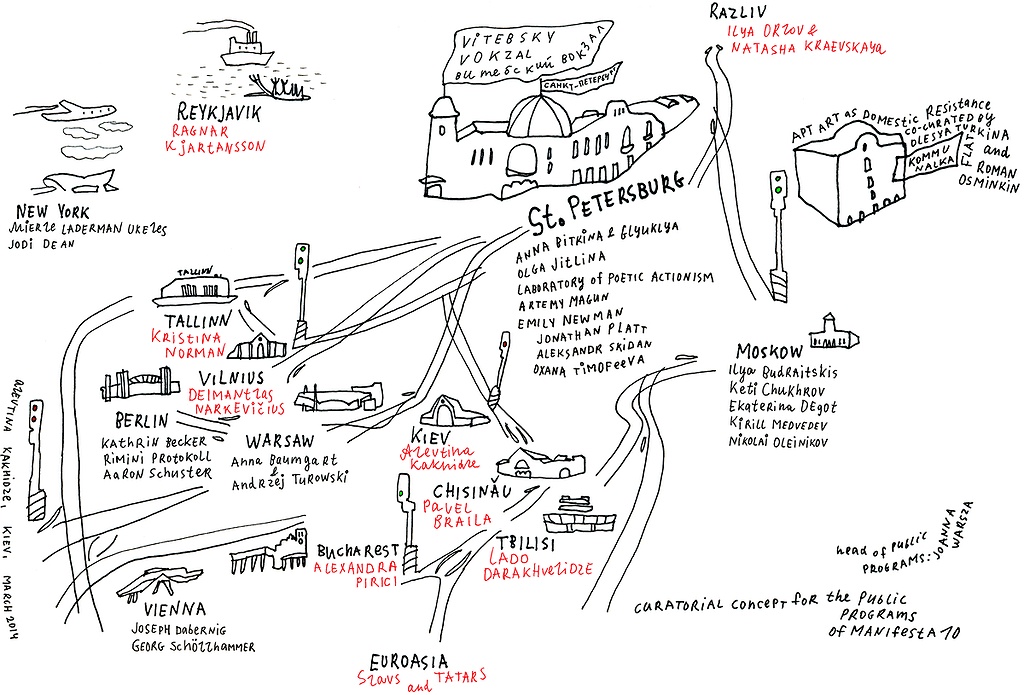 RAZLIV
ILYA ORLOV &
NATASHA KRAEVSKAYA
VITEBSKY
VOKZAL
ВИТЕБСКИЙ ВОКЗАЛ
САНКТ-ПЕТЕРБУРГ
REYKJAVIK
RAGNAR
KJARTANSSON
APT ART AS DOMESTIC RESISTANCE
CO-CURATED BY
OLESYA TURKINA
and
ROMAN
OSMINKIN
KOMMU
NALKA
FLAT
NEW YORK
MIERLE LADERMAN UKELES
JODI DEAN
St. PETERSBURG
ANNA BITKINA & GLYUKLYA
OLGA JITLINA
LABORATORY of POETIC ACTIONISM
ARTEMY MAGUN
EMILY NEWMAN
JONATHAN PLATT
ALEKSANDR SKIDAN
OXANA TIMOFEEVA
TALLINN
TALLINN
KRISTINA
NORMAN
VILNIUS
DEIMANTAS
NARKEVIČIUS
MOSKOW
Ilya Budraitskis
Keti Chukhrov
Ekaterina Degot
Kirill Medvedev
Nikolai Oleinikov
BERLIN
Kathrin Becker
Rimini Protokoll
Aaron Schuster
WARSAW
Anna Baumgart
&
Andrzej Turowski
KIEV
Alevtina
Kakhidze
CHISINĂU
PAVEL
BRAILA
TBILISI
LADO
DARAKHVELIDZE
BUCHAREST
ALEXANDRA
PIRICI
VIENNA
JOSEPH DABERNIG
GEORG SCHÖLLHAMMER
EUROASIA
SLAVS and TATARS
head of PUBLIC
PROGRAMS: JOANNA
WARSZA
CURATORIAL CONCEPT for the PUBLIC
PROGRAMS
of MANIFESTA 10
ALEVTINA KAKHIDZE, KIEV, MARCH 2014